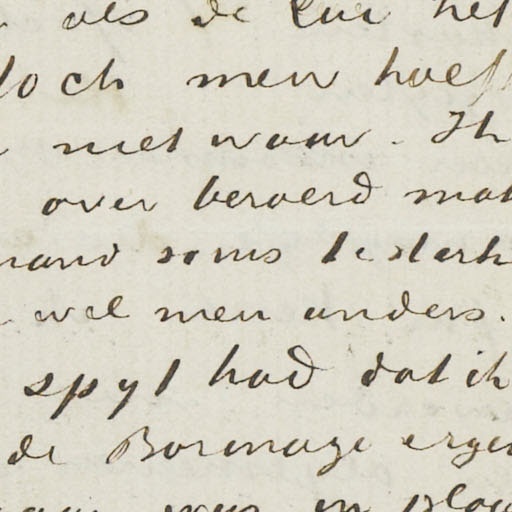 als de
doch men hoef
niet waar. Ik
over beroerd mat
mand soms te sterk
wel men anders.
spyt had dat ik
de Borinage erge